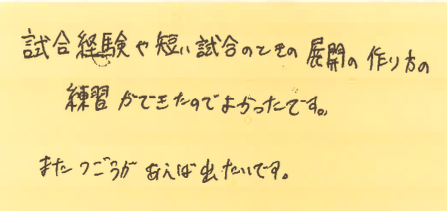 試合経験や短い試合のときの展開の作り方の
練習ができたのでよかったです。
またつごうがあえば出たいです。